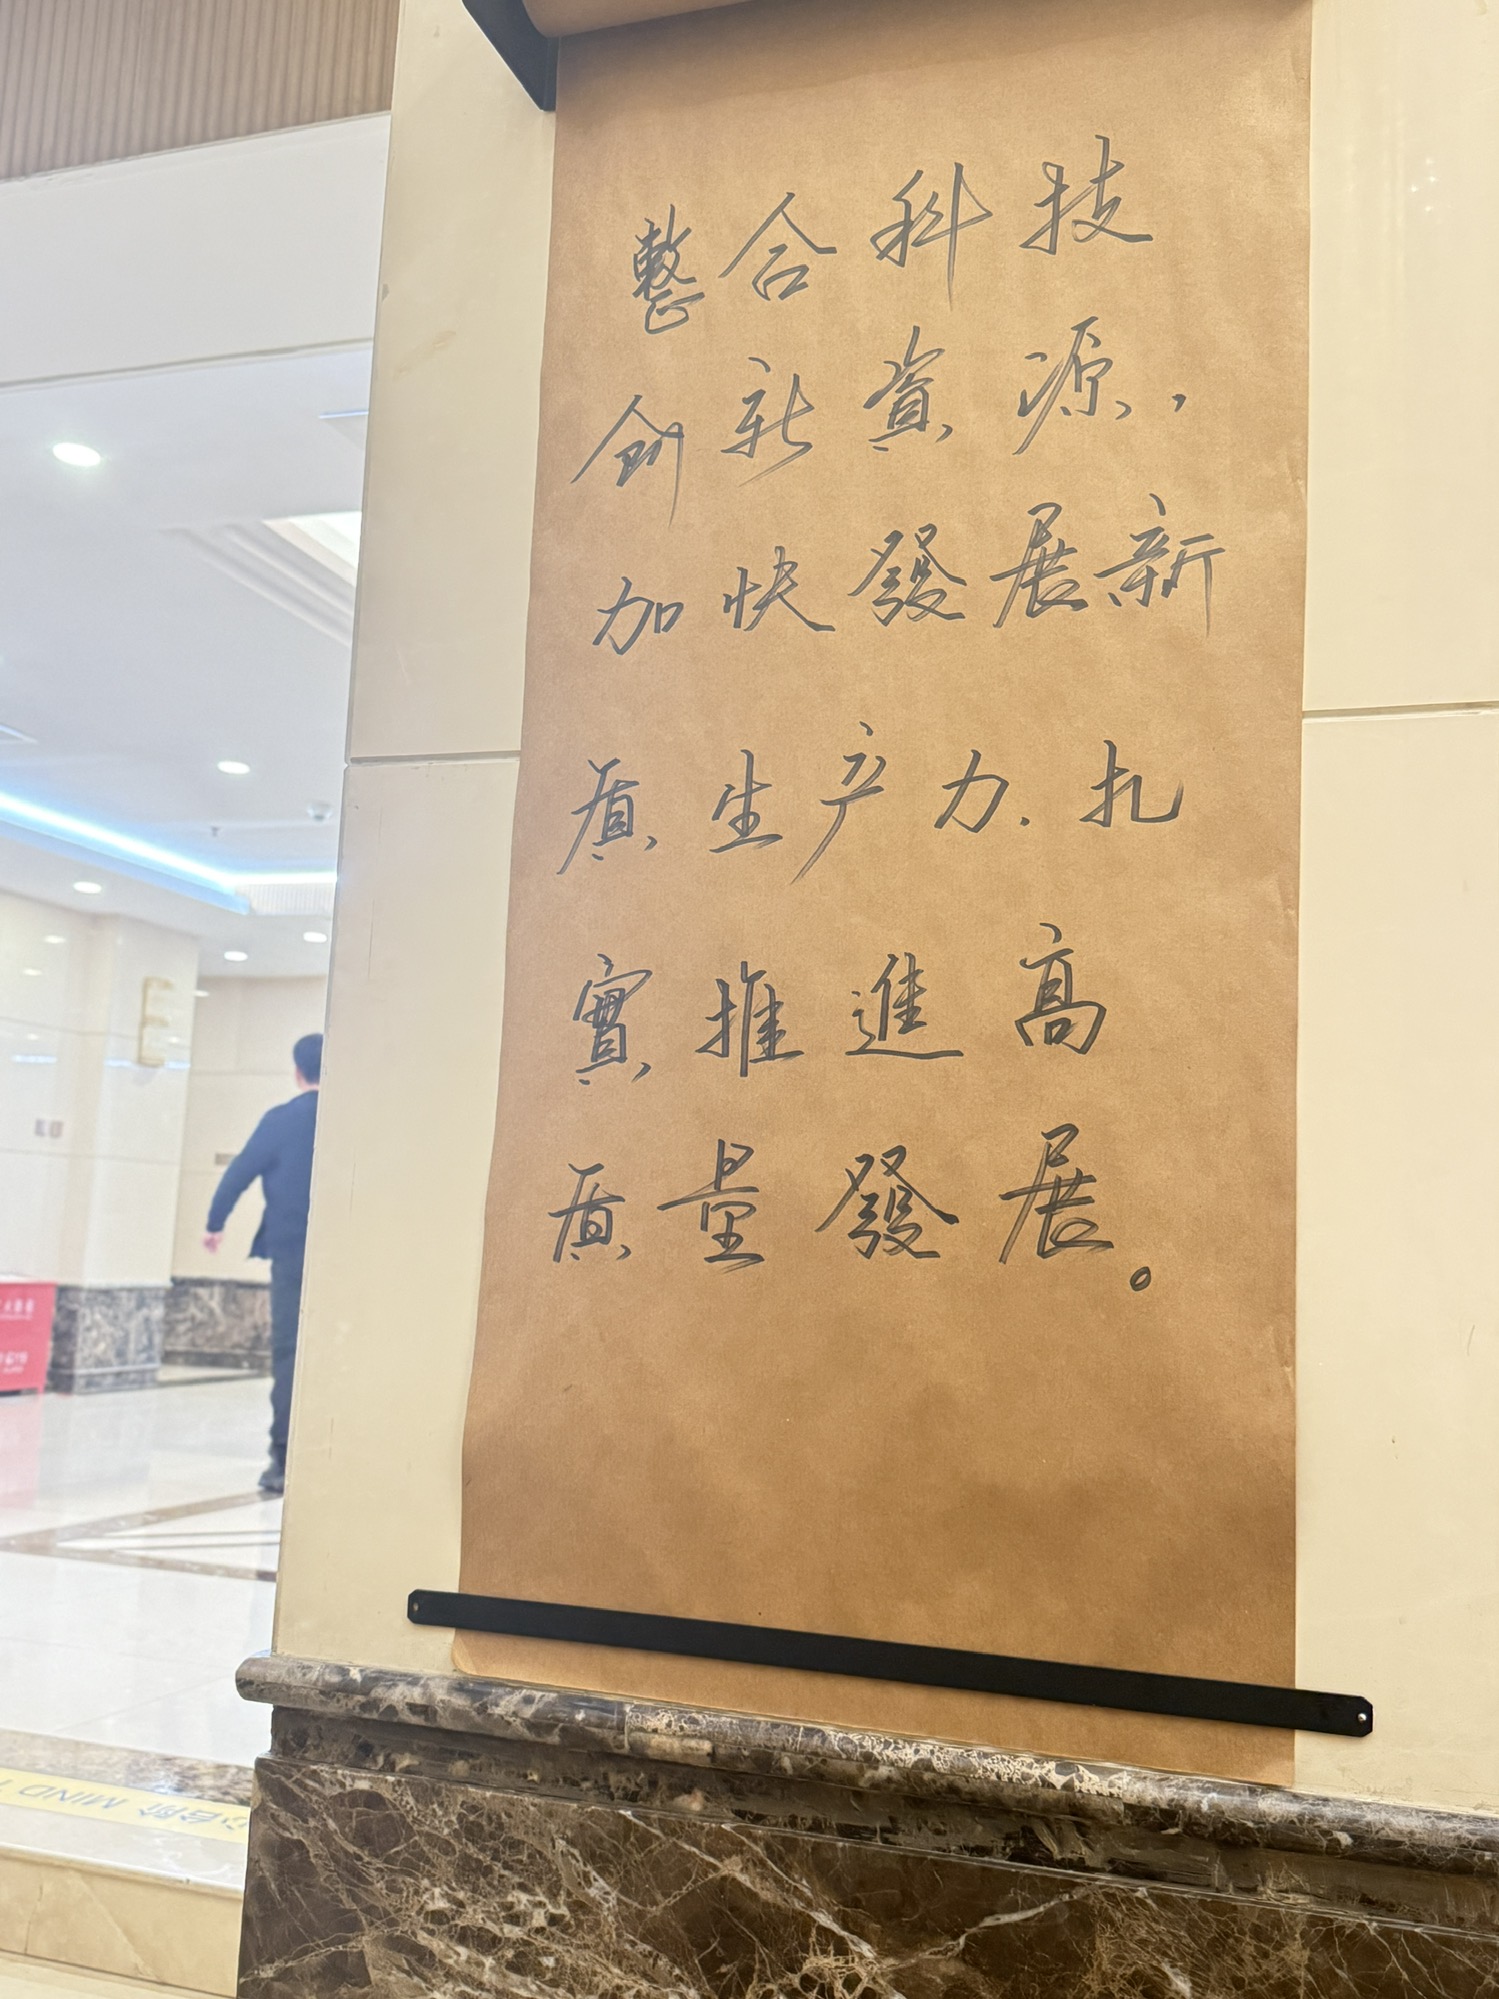 整合科技
創新資源，
加快發展新
质生产力.扎
實推進高
质量發展。
MIND